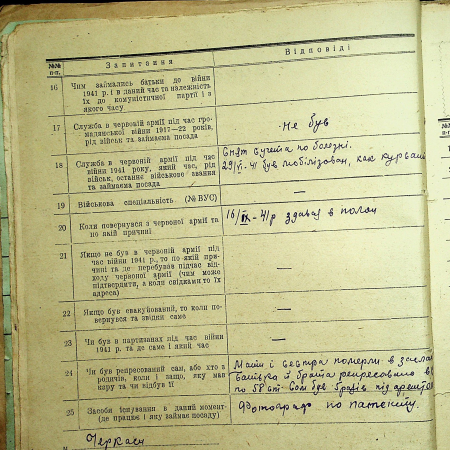 №№ п-п.
Запитання
Відповіді
16
Чим займались батьки до війни
1941 р. і в даний час та належність
їх до комуністичної партії і з
якого часу
17
Служба в червоній армії під час гро-
малянської війни 1917—22 років,
рід військ та займаєма посада
не був
18
Служба в червоній армії під час
війни 1941 року, який час, рід
військ, останнє військове звання
та займаєма посада
Снят с учета по болезні.
29/VI-41 був мобілізован, как
19
Військова спеціальність (№ ВУС)
—
20
Коли повернувся з червоної армії та
по якій причині
16/IX-41 р здавав в полон
21
Якщо не був в червоній армії під
час війни 1941 р., то по якій при-
чині та де перебував підчас від-
ходу червоної армії (чим може
підтвердити, а коли свідками то їх
адреса)
—
22
Якщо був евакуйований, то коли по-
вернувся та звідки саме
—
23
Чи був в партизанах під час війни
1941 р. та де саме і який час
—
24
Чи був репресований сам, або хто з
родичів, коли і защо, яку мав
кару та чи відбув її
Мати і сестра померли в
Батько й брата репресовано
по 58 ст. Сам був під
25
Засоби існування в даний момент
(де працює і яку займає посаду)
Фотограф по патенту.
Черкаси